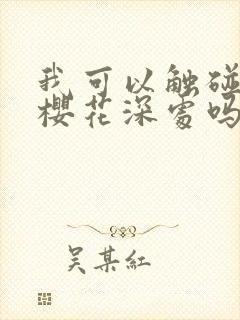 我可以触碰
樱花深处吗
吴某红